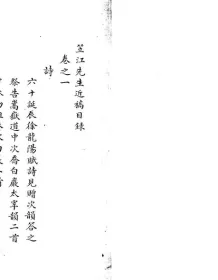 笠江先生近稿目錄
卷之一
詩
六十誕辰徐龍陽賦詩見贈次韻答之
祭告嵩嶽道中次喬白巖太宰韻二首